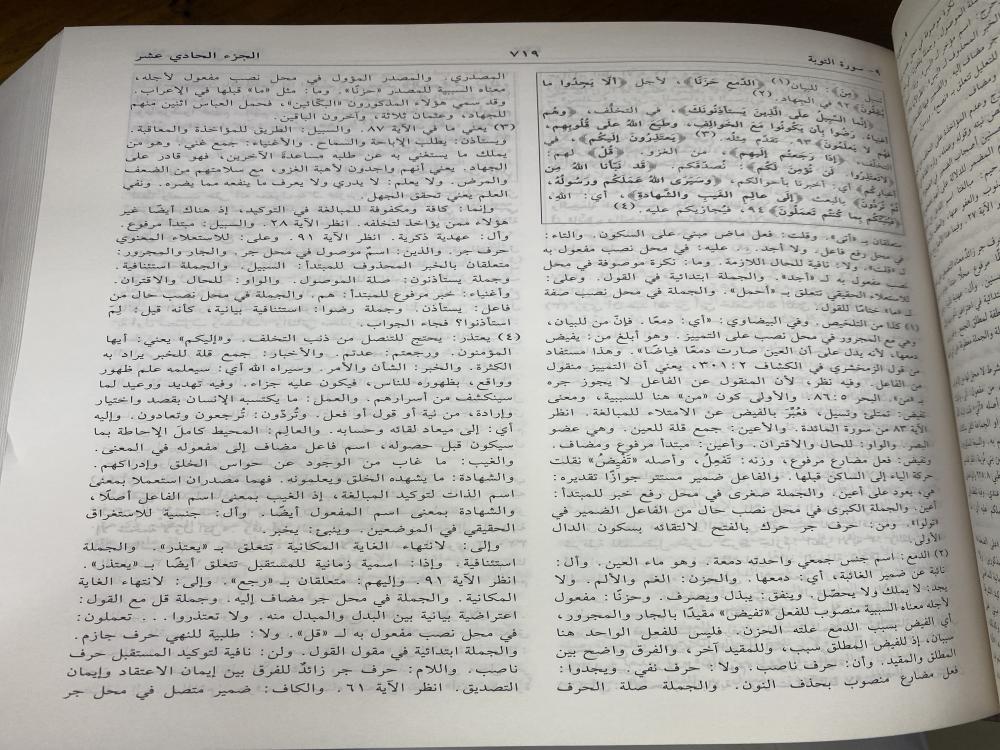 ٩- سورة التوبة
٧١٩
الجزء الحادي عشر
تسيل ﴿مِنَ﴾: للبيان(١) ﴿الدَّمعِ حَزَنًا﴾، لأجل ﴿أَلّا يَجِدُوا ما
يُنفِقُونَ﴾ ٩٢ في الجهاد. (٢)
﴿إنَّما السَّبِيلُ عَلَى الَّذِينَ يَستأذِنُونَكَ﴾، في التخلف، ﴿وهُم
أغنِياءُ، رَضُوا بِأن يَكُونُوا مَعَ الخَوالِفِ، وطَبَعَ اللهُ علَى قُلُوبِهِم،
فهُم لا يَعلَمُونَ﴾ ٩٣. تقدّم مثله. (٣) ﴿يَعتَذِرُونَ إلَيكُم﴾، في
التخلف، ﴿إذا رَجَعتُم إلَيهِم﴾، من الغزو. ﴿قُلْ﴾ لهم:
﴿لا تَعتَذِرُوا. لَن نُؤمِنَ لَكُم﴾: نُصدّقكم. ﴿قَد نَبّأنا اللهُ مِن
أخبارِكُم﴾ أي: أخبرنا بأحوالكم، ﴿وسَيَرَى اللهُ عَمَلَكُم ورَسُولُهُ،
ثُمَّ تُرَدُّونَ﴾ بالبعث ﴿إلَى عالِمِ الغَيبِ والشَّهادةِ﴾، أي: اللهِ،
﴿فيُنَبِّئُكُم بِما كُنتُم تَعمَلُونَ﴾ ٩٤، فيُجازيكم عليه. (٤)
متعلقان بـ «أتى». وقلت: فعل ماض مبني على السكون. والتاء:
في محل رفع فاعل. ولا أجد... عليه: في محل نصب مفعول به
لـ «قلت». ولا: نافية للحال اللازمة. وما: نكرة موصوفة في محل
نصب مفعول به لـ «أجد». والجملة ابتدائية في القول. وعلى:
للاستعلاء الحقيقي تتعلق بـ «أحمل». والجملة في محل نصب صفة
لـ «ما» ختامًا للقول.
(١) كذا من التلخيص. وفي البيضاوي: «أي: دمعًا. فإنّ من للبيان،
وهي مع المجرور في محل نصب على التمييز. وهو أبلغ من: يفيض
دمعها، لأنه يدل على أن العين صارت دمعًا فياضًا». وهذا مستفاد
من قول الزمخشري في الكشاف ٣٠١:٢، يعني أن التمييز منقول
من الفاعل. وفيه نظر، لأن المنقول عن الفاعل لا يجوز جره
بـ «من». البحر ٨٦:٥. والأولى كون «من» هنا للسببية، ومعنى
تفيض: تمتلئ وتسيل، فعُبّرَ بالفيض عن الامتلاء للمبالغة. انظر
الآية ٨٣ من سورة المائدة. والأعين: جمع قلة للعين. وهي عضو
البصر. والواو: للحال والاقتران. وأعين: مبتدأ مرفوع ومضاف.
وتفيض: فعل مضارع مرفوع، وزنه: تَفعِلُ، وأصله «تَفْيِضُ» نقلت
حركة الياء إلى الساكن قبلها. والفاعل ضمير مستتر جوازًا تقديره:
هي، يعود على أعين. والجملة صغرى في محل رفع خبر للمبتدأ:
أعين. والجملة الكبرى في محل نصب حال من الفاعل الضمير في
«تولوا». ومن: حرف جر حرك بالفتح لالتقائه بسكون الدال
الأولى.
(٢) الدمع: اسم جنس جمعي واحدته دمعة. وهو ماء العين. وأل:
نائبة عن ضمير الغائبة، أي: دمعها. والحزن: الغم والألم. ولا
يجد: لا يملك ولا يحصّل. وينفق: يبذل ويصرف. وحزنًا: مفعول
لأجله معناه السببية منصوب للفعل «تفيض» مقيدًا بالجار والمجرور،
أي الفيض بسبب الدمع علته الحزن. فليس للفعل الواحد هنا
سببان، إذ للفيض المطلق سبب، وللمقيد آخر، والفرق واضح بين
المطلق والمقيد. وأن: حرف ناصب. ولا: حرف نفي. ويجدوا:
فعل مضارع منصوب بحذف النون. والجملة صلة الحرف
المصدري. والمصدر المؤول في محل نصب مفعول لأجله،
معناه السببية للمصدر «حزنًا». وما: مثل «ما» قبلها في الإعراب.
وقد سمي هؤلاء المذكورون «البكّائين»، فحمل العباس اثنين منهم
للجهاد، وعثمان ثلاثة، وآخرون الباقين.
(٣) يعني ما في الآية ٨٧. والسبيل: الطريق للمؤاخذة والمعاقبة.
ويستأذن: يطلب الإباحة والسماح. والأغنياء: جمع غني. وهو من
يملك ما يستغني به عن طلبه مساعدة الآخرين، فهو قادر على
الجهاد. يعني أنهم واجدون لأهبة الغزو، مع سلامتهم من الضعف
والمرض. ولا يعلم: لا يدري ولا يعرف ما ينفعه مما يضره. ونفي
العلم يعني تحقق الجهل.
وإنما: كافة ومكفوفة للمبالغة في التوكيد، إذ هناك أيضًا غير
هؤلاء ممن يؤاخذ لتخلفه. انظر الآية ٢٨. والسبيل: مبتدأ مرفوع.
وأل: عهدية ذكرية. انظر الآية ٩١. وعلى: للاستعلاء المعنوي
حرف جر. والذين: اسمٌ موصول في محل جر. والجار والمجرور:
متعلقان بالخبر المحذوف للمبتدأ: السبيل. والجملة استئنافية.
وجملة يستأذنون: صلة الموصول. والواو: للحال والاقتران.
وأغنياء: خبر مرفوع للمبتدأ: هم. والجملة في محل نصب حال من
فاعل: يستأذن. وجملة رضوا: استئنافية بيانية، كأنه قيل: لِمَ
استأذنوا؟ فجاء الجواب.
(٤) يعتذر: يحتج للتنصل من ذنب التخلف. و«إليكم» يعني: أيها
المؤمنون. ورجعتم: عدتم. والأخبار: جمع قلة للخبر يراد به
الكثرة. والخبر: الشأن والأمر. وسيراه الله أي: سيعلمه علم ظهور
وواقع، بظهوره للناس، فيكون عليه جزاء. وفيه تهديد ووعيد لما
سينكشف من أسرارهم. والعمل: ما يكتسبه الإنسان بقصد واختيار
وإرادة، من نية أو قول أو فعل. وتُردّون: تُرجعون وتعادون. وإليه
أي: إلى ميعاد لقائه وحسابه. والعالِم: المحيط كاملَ الإحاطة بما
سيكون قبل حصوله، اسم فاعل مضاف إلى مفعوله في المعنى.
والغيب: ما غاب من الوجود عن حواس الخلق وإدراكهم.
والشهادة: ما يشهده الخلق ويعلمونه. فهما مصدران استعملا بمعنى
اسم الذات لتوكيد المبالغة، إذ الغيب بمعنى اسم الفاعل أصلًا،
والشهادة بمعنى اسم المفعول أيضًا. وأل: جنسية للاستغراق
الحقيقي في الموضعين. وينبئ: يخبر.
وإلى: لانتهاء الغاية المكانية تتعلق بـ «يعتذر». والجملة
استئنافية. وإذا: اسمية زمانية للمستقبل تتعلق أيضًا بـ «يعتذر».
انظر الآية ٩١. وإليهم: متعلقان بـ «رجع». وإلى: لانتهاء الغاية
المكانية. والجملة في محل جر مضاف إليه. وجملة قل مع القول:
اعتراضية بيانية بين البدل والمبدل منه. ولا تعتذروا... تعملون:
في محل نصب مفعول به لـ «قل». ولا: طلبية للنهي حرف جازم.
والجملة ابتدائية في مقول القول. ولن: نافية لتوكيد المستقبل حرف
ناصب. واللام: حرف جر زائدٌ للفرق بين إيمان الاعتقاد وإيمان
التصديق. انظر الآية ٦١. والكاف: ضمير متصل في محل جر